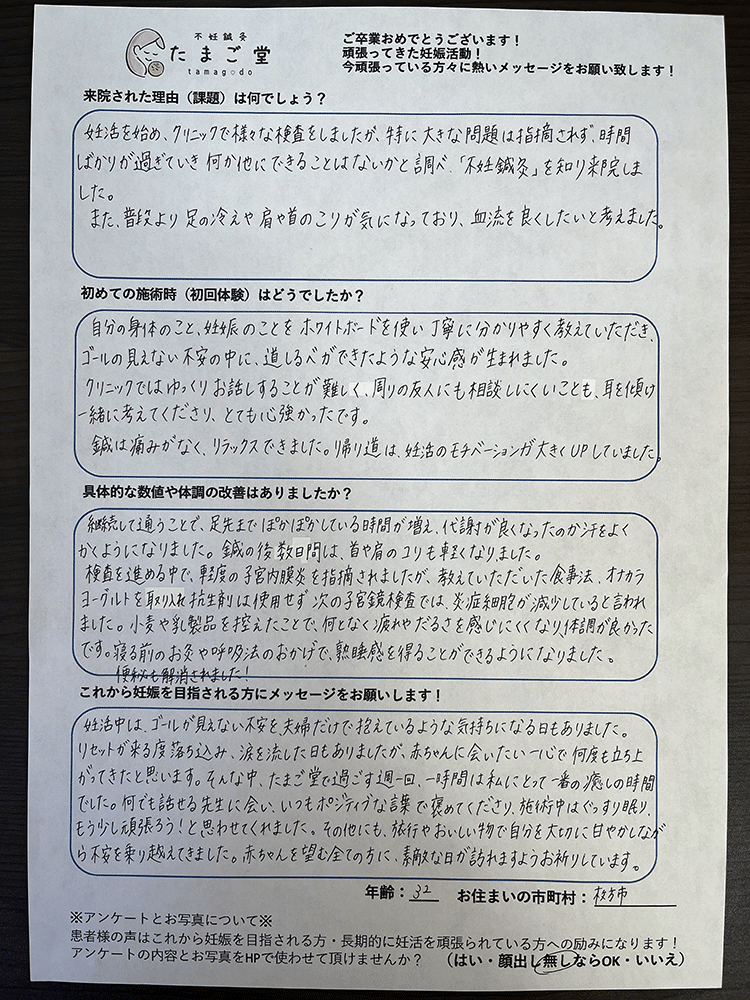 不妊鍼灸
たまご堂
tamagodo
ご卒業おめでとうございます！
頑張ってきた妊娠活動！
今頑張っている方々に熱いメッセージをお願い致します！
来院された理由（課題）は何でしょう？
妊活を始め、クリニックで様々な検査をしましたが、特に大きな問題は指摘されず、時間
ばかりが過ぎていき何か他にできることはないかと調べ、「不妊鍼灸」を知り来院しま
した。
また、普段より足の冷えや肩や首のこりが気になっており、血流を良くしたいと考えました。
初めての施術時（初回体験）はどうでしたか？
自分の身体のこと、妊娠のことをホワイトボードを使い丁寧に分かりやすく教えていただき、
ゴールの見えない不安の中に、道しるべができたような安心感が生まれました。
クリニックではゆっくりお話しすることが難しく、周りの友人にも相談しにくいことも、耳を傾け
一緒に考えてくださり、とても心強かったです。
鍼は痛みがなく、リラックスできました。帰り道は、妊活のモチベーションが大きくUPしていました。
具体的な数値や体調の改善はありましたか？
継続して通うことで、足先までぽかぽかしている時間が増え、代謝が良くなったのか汗をよく
かくようになりました。鍼の後数日間は、首や肩のコリも軽くなりました。
検査を進める中で、軽度の子宮内膜炎を指摘されましたが、教えていただいた食事法、オナカラ
ヨーグルトを取り入れ抗生剤は使用せず次の子宮鏡検査では、炎症細胞が減少していると言われ
ました。小麦や乳製品を控えたことで、何となく疲れやだるさを感じにくくなり、体調が良かった
です。寝る前のお灸や呼吸法のおかげで、熟睡感を得ることができるようになりました。
便秘も解消されました！
これから妊娠を目指される方にメッセージをお願いします！
妊活中は、ゴールが見えない不安を夫婦だけで抱えているような気持ちになる日もありました。
リセットが来る度落ち込み、涙を流した日もありましたが、赤ちゃんに会いたい一心で何度も立ち上
がってきたと思います。そんな中、たまご堂で過ごす週一回、一時間は私にとって一番の癒しの時間
でした。何でも話せる先生に会い、いつもポジティブな言葉で褒めてくださり、施術中はぐっすり眠り、
もう少し頑張ろう！と思わせてくれました。その他にも、旅行やおいしい物で自分を大切に甘やかしなが
ら不安を乗り越えてきました。赤ちゃんを望む全ての方に、素敵な日が訪れますようお祈りしています。
年齢：32 お住まいの市町村：枚方市
※アンケートとお写真について※
患者様の声はこれから妊娠を目指される方・長期的に妊活を頑張られている方への励みになります！
アンケートの内容とお写真をHPで使わせて頂けませんか？ （はい・顔出し無しならOK・いいえ）